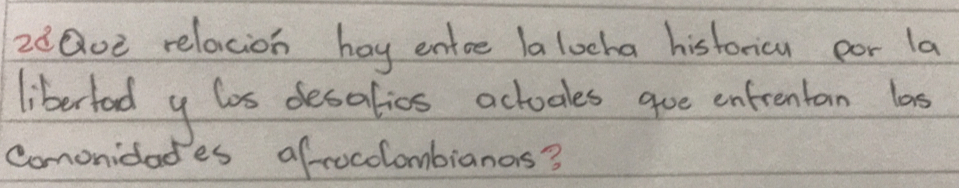 2¿Qué relación hay entre la lucha historica por la
libertad y los desafios actuales que enfrentan las
comonidades afrocolombianas?